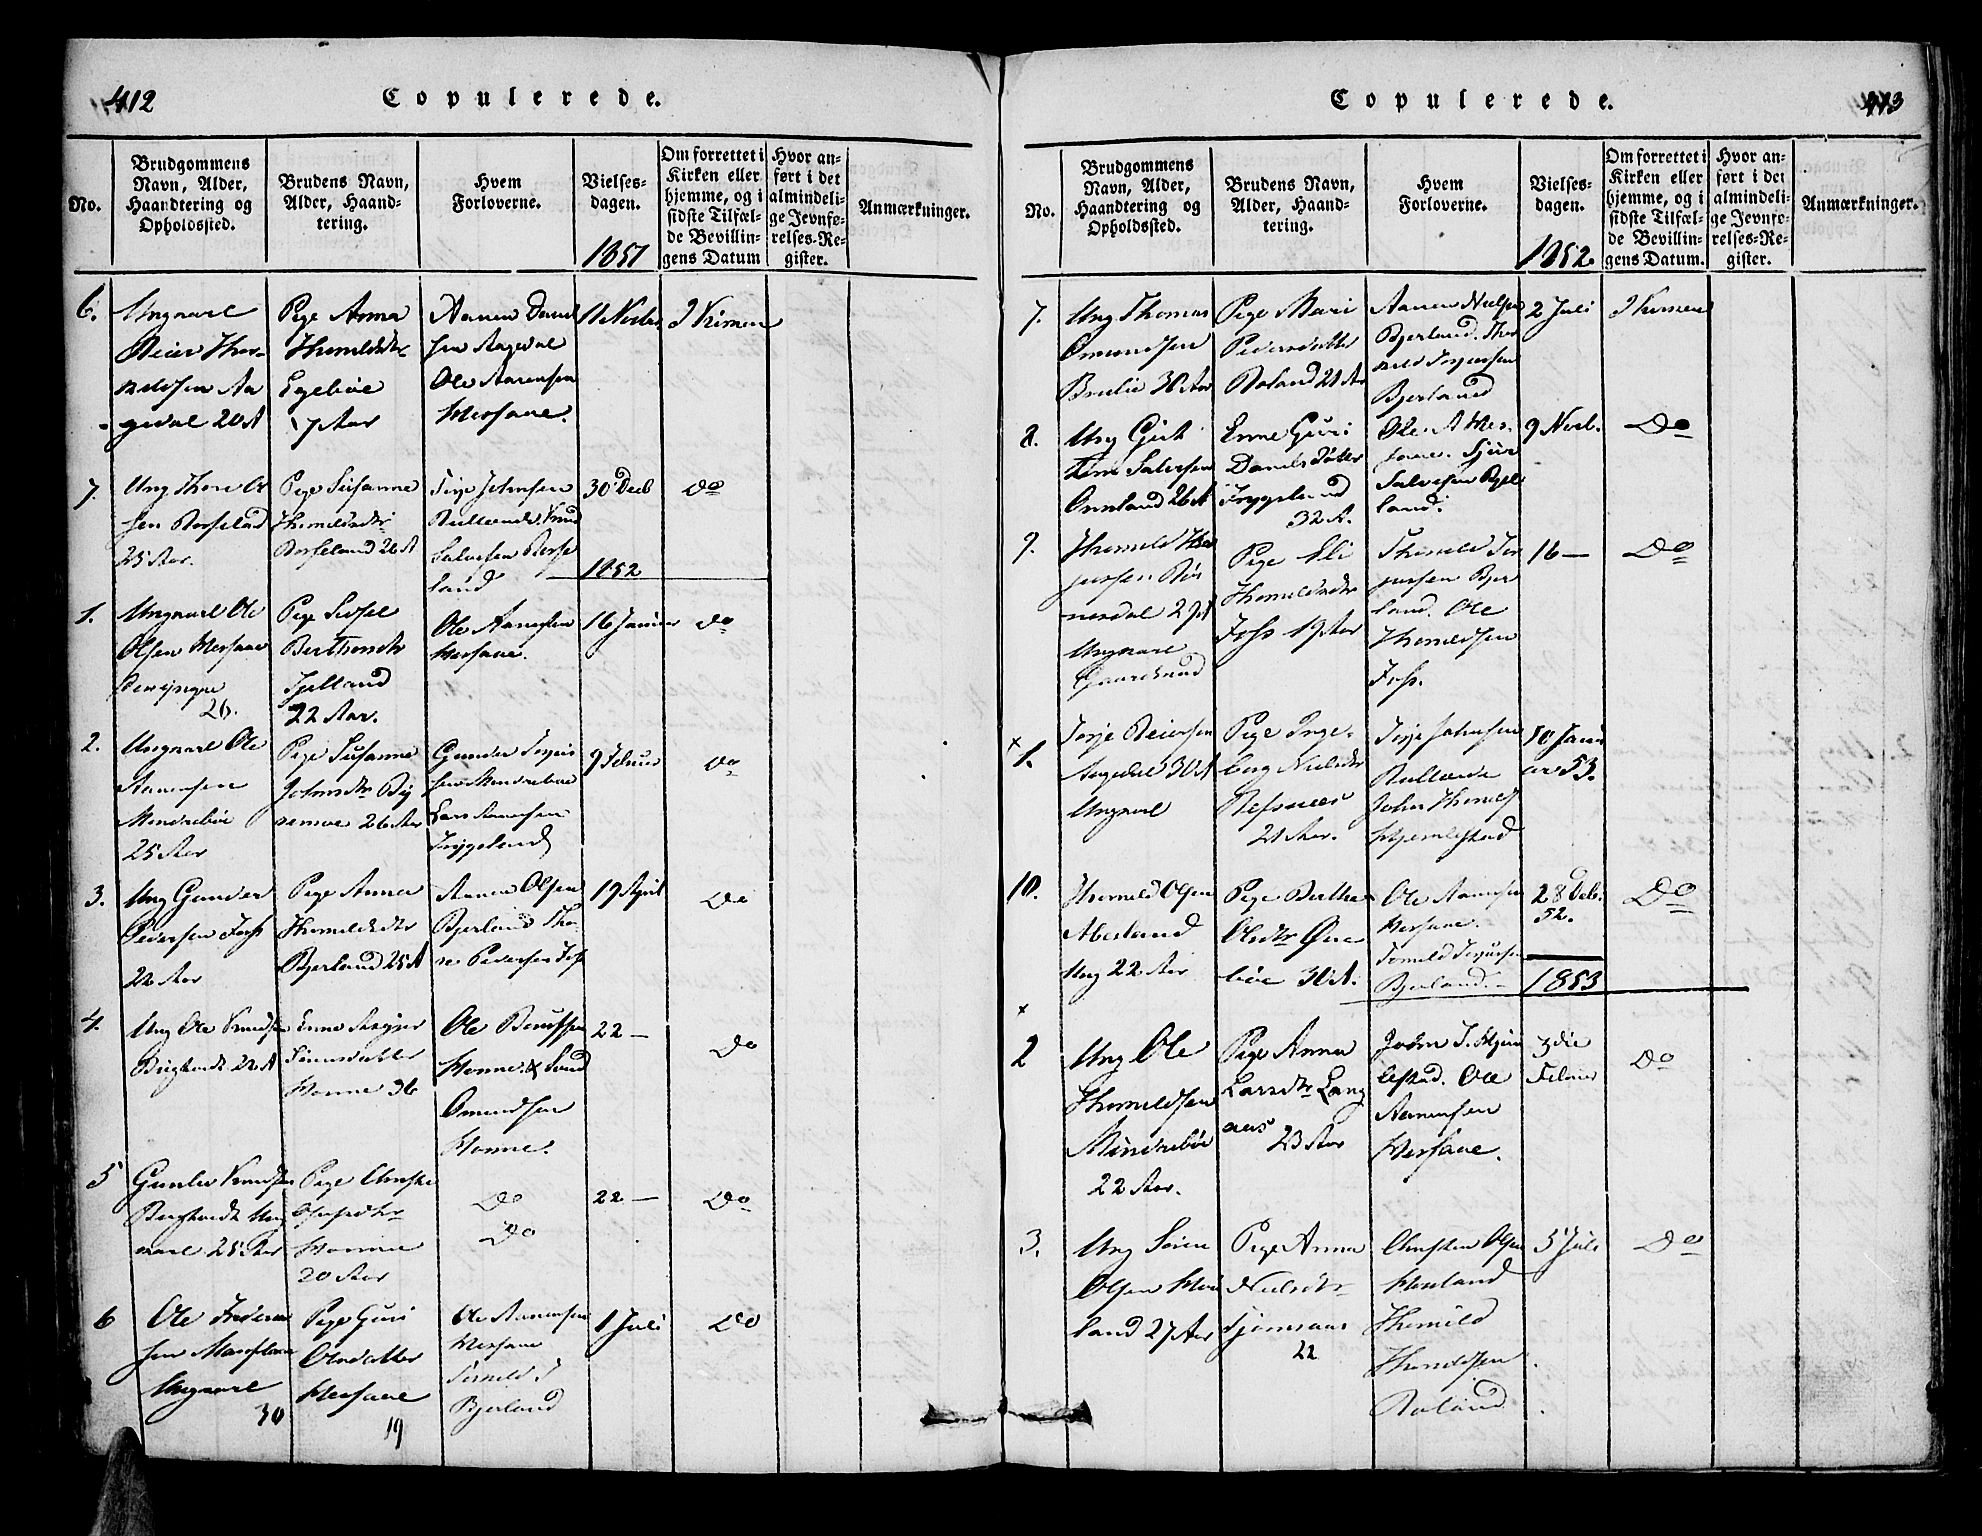 412
Copulerede.
No.
Brudgommens
Navn, Alder,
Haandtering og
Opholdssted.
Brudens Navn,
Alder, Haand-
tering.
Hvem
Forloverne.
Vielses-
dagen.
1851
Om forrettet i
Kirken eller
hjemme, og i
sidste Tilfæl-
de Bevillin-
gens Datum
Hvor an-
ført i det
almindeli-
ge Jevnfø-
relses-Re-
gister.
Anmærkninger.
6.
Ungkarl
Reier Thor-
kildsen Aa
gedal 20 A
Pige Anna
Thomeldsdtr
Egebøe
17 Aar
Aanen Dani
sen Aagedal
Ole Aanensen
Mersane.
11 Novbr
I Kirken
7
Ung Thore Ol
sen Rosseland
25 Aar.
Pige Susanne
Thomeldsdtr
Rosseland 26 A
Terje Johnsen
Knud
Salvesen Rosse
land
30 Decb
Do
1852
1.
Ungkarl Ole
Olsen Mersane
26.
Pige Sissel
Berthondtr
Fjelland
22 Aar.
Ole Aanensen
Mersane.
16 Januar
Do
2.
Ungkarl Ole
Aanensen
Mindrebøe
25 Aar
Pige Susanne
Johnsdtr
26 Aar
Gunder Terjus
sen Mindrebøe
Lars Aanensen
Tryggeland
9 Februar
Do
3.
Ung Gunder
Pedersen Foss
22 Aar
Pige Anna
Thomeldsdtr
Bjerland 25 A
Aanen Olsen
Bjerland Tho
re Pedersen Fos
19 April
Do
4.
Ung Ole Knudsen
22 A
Enke Aasger
Simensdatter
Honne 36
Ole
Honne
Omundsen
Honne.
22 —
Do
5
Gunder Knudsen
Ung
karl 25 Aar
Pige
Honne
20 Aar
Do
Do
22 —
Do
6
Ole
sen
Ungkarl
30
Pige Guri
Olesdatter
Mersane
19
Ole Aanensen
Mersane
Tomeld T
Bjerland
1 Juli
Do
413
Copulerede.
No.
Brudgommens
Navn, Alder,
Haandtering og
Opholdssted.
Brudens Navn,
Alder, Haand-
tering.
Hvem
Forloverne.
Vielses-
dagen.
1852.
Om forrettet i
Kirken eller
hjemme, og i
sidste Tilfæl-
de Bevillin-
gens Datum.
Hvor an-
ført i det
almindeli-
ge Jevnfø-
relses-Re-
gister.
Anmærkninger.
7.
Ung Thomas
Omundsen
Brelie 30 Aar
Pige Mari
Pedersdatter
Roland 21 Ar
Aanen Nielsen
Bjerland. Thor
kild Terjussen
Bjerland
2 Juli
I Kirken
8.
Ung Gjert
Salvesen
Omland 26 A
Enke Guri
Danielsdatter
Tryggeland
32 A.
Ole A Mer-
sane. Sjur
Salvesen Bjel
land.
9 Novb.
Do
9.
Thomeld Ter
jussen Røs
nesdal 27 A
Ungkarl
Gaardmand
Pige Eli
Thomeldsdtr
Foss 19 Aar
Thomeld Ter
jussen Bjer
land. Ole
Thomeldsen
Foss.
16 —
Do
x
1.
Terje Reiersen
Aagedal 30 A
Ungkarl
Pige Inge-
borg Nielsdtr
Refsnæs
21 Aar.
Terje Johnsen
John Thomes
Hjemlestad
10 Janu
ar 53.
10.
Thomeld Olsen
Aberland
Ung 22 Aar
Pige Berthe
Olsdtr Øvre
bøe 30 A.
Ole Aanensen
Mersane.
Tomeld Terjussen
Bjerland.
28 Decb.
52.
Do
1853
x
2
Ung Ole
Thomeldsen
Mindrebøe
22 Aar.
Pige Anna
Larsdtr Lang
aas
23 Aar
John T. Hjem
lestad. Ole
Aanensen
Mersane.
3die
Februar
Do
3.
Ung Søren
Olsen Høi
land 27 Aar
Pige Anna
Nielsdtr
Tjomsaas
22
Christen Olsen
Høiland
Thomeld
Thomeldsen
Roland
5 Juli
Do